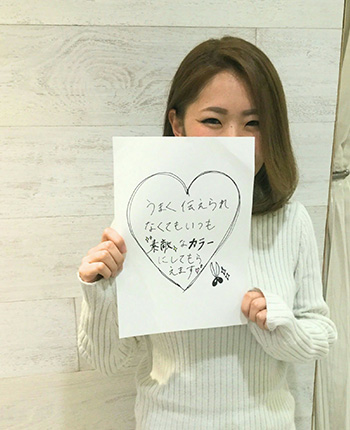 うまく伝えられ
なくてもいつも
"素敵"なカラー
にしてもら
えます